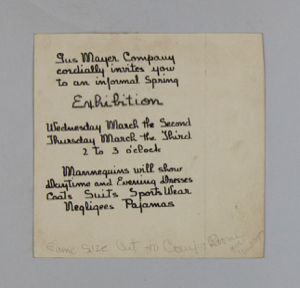 Gus Mayer Company
cordially invites you
to an informal Spring
Exhibition
Wednesday March the Second
Thursday March the Third
2 to 3 o'clock
Mannequins will show
Daytime and Evening Dresses
Coats Suits Sports Wear
Negligees Pajamas
Same Size Cut to